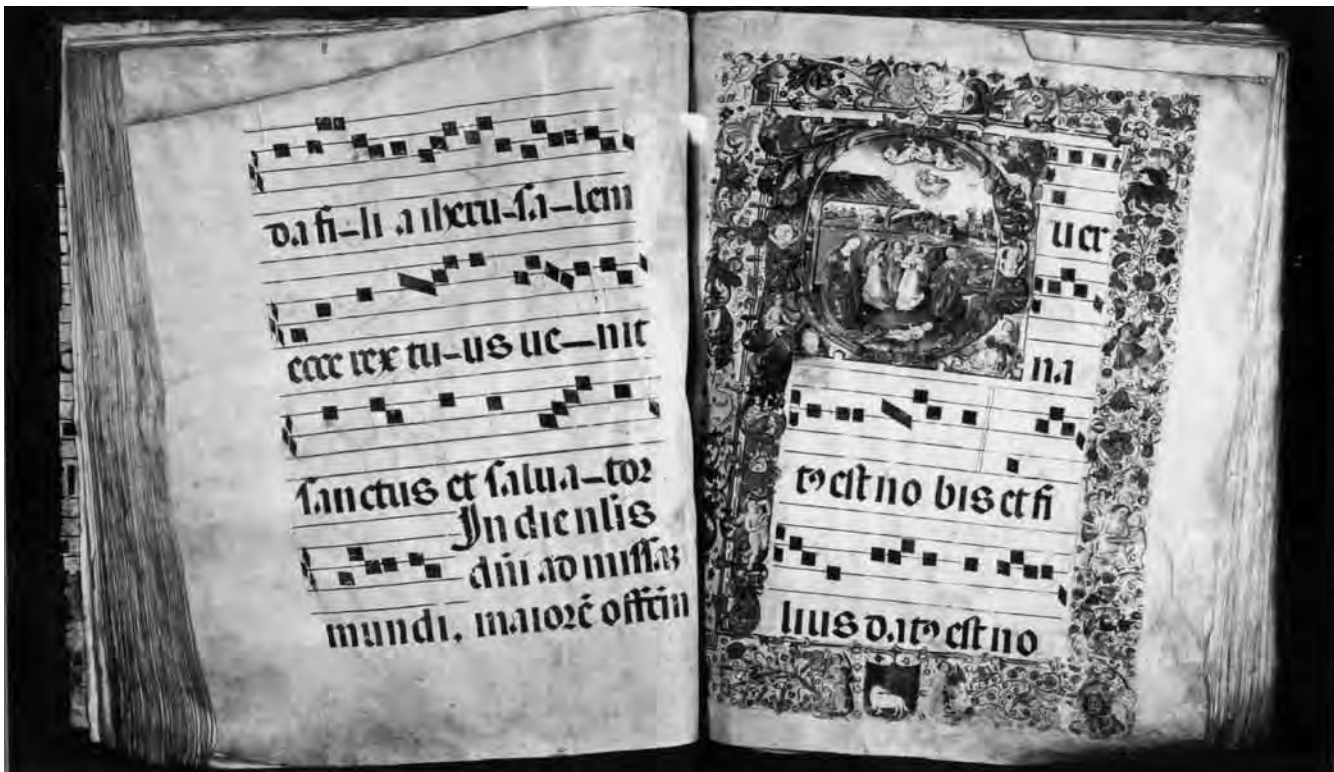 da fi–li a iheru–sa–lem
ecce rex tu–us ue–nit
sanctus et salua–tor
In die nlis
dñi ad missaz
mundi. maiorē offm
uer
na
tꝰ est no bis et fi
lius datꝰ est no